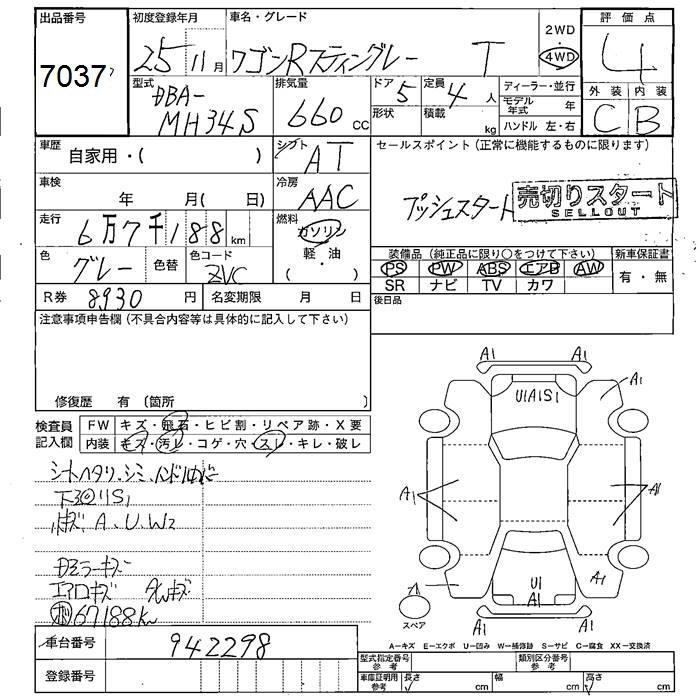 出品番号
7037
初度登録年月 車名・グレード
25 11月 ワゴンRスティングレー T
2WD
4WD
評価点
4
外装 内装
C B
型式 DBA-
MH34S
排気量
660 cc
ドア 5
形状
定員 4 人
積載 kg
ディーラー・並行
モデル年式 年
ハンドル 左・右
車歴 自家用・( )
シフト AT
車検 年 月( 日)
冷房 AAC
走行 6万7千188 km
燃料
ガソリン
軽・油
( )
色 グレー 色替
色コード ZVC
R券 8930 円 名変期限 月 日
セールスポイント(正常に機能するものに限ります)
プッシュスタート
売切りスタート
SELLOUT
装備品(純正品に限り○をつけて下さい) 新車保証書
PS PW ABS エアB AW 有・無
SR ナビ TV カワ
後日品
注意事項申告欄(不具合内容等は具体的に記入して下さい)
修復歴 有(箇所 )
検査員記入欄
FW キズ・飛石・ヒビ割・リペア跡・X要
内装 キズ・汚レ・コゲ・穴・スレ・キレ・破レ
シートヘタリ、シミ
S1
キズ A、U、W2
ミラーキズ
エアロキズ
67188km
A1 A1
U1A1S1
A1
A1
A1
U1
A1
A1
スペア
A1 A1
A-キズ E-エクボ U-凹み W-補修跡 S-サビ C-腐食 XX-交換済
車台番号 942298
登録番号
型式指定番号参考 類別区分番号参考
車庫証明用参考 長さ cm 幅 cm 高さ cm